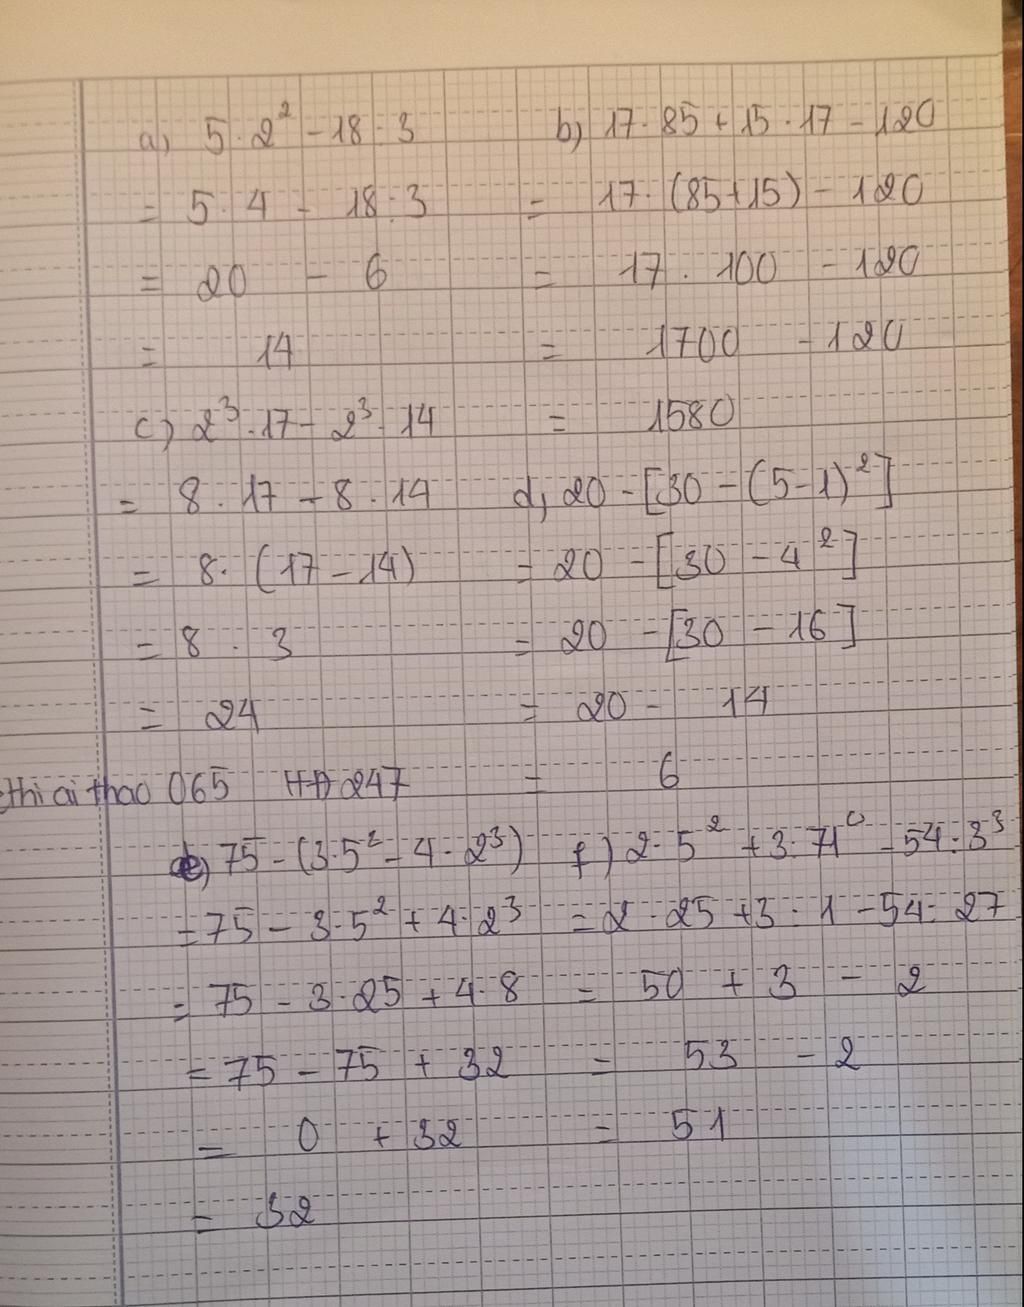 a) 5 · 2² - 18 : 3
= 5 · 4 - 18 : 3
= 20 - 6
= 14
b) 17 · 85 + 15 · 17 - 120
= 17 · (85 + 15) - 120
= 17 · 100 - 120
= 1700 - 120
= 1580
c) 2³ · 17 - 2³ · 14
= 8 · 17 - 8 · 14
= 8 · (17 - 14)
= 8 · 3
= 24
d) 20 - [30 - (5 - 1)²]
= 20 - [30 - 4²]
= 20 - [30 - 16]
= 20 - 14
= 6
thi ai thao 065 HĐ 247
e) 75 - (3 · 5² - 4 · 2³)
= 75 - 3 · 5² + 4 · 2³
= 75 - 3 · 25 + 4 · 8
= 75 - 75 + 32
= 0 + 32
= 32
f) 2 · 5² + 3 · 71⁰ - 54 : 3³
= 2 · 25 + 3 · 1 - 54 : 27
= 50 + 3 - 2
= 53 - 2
= 51